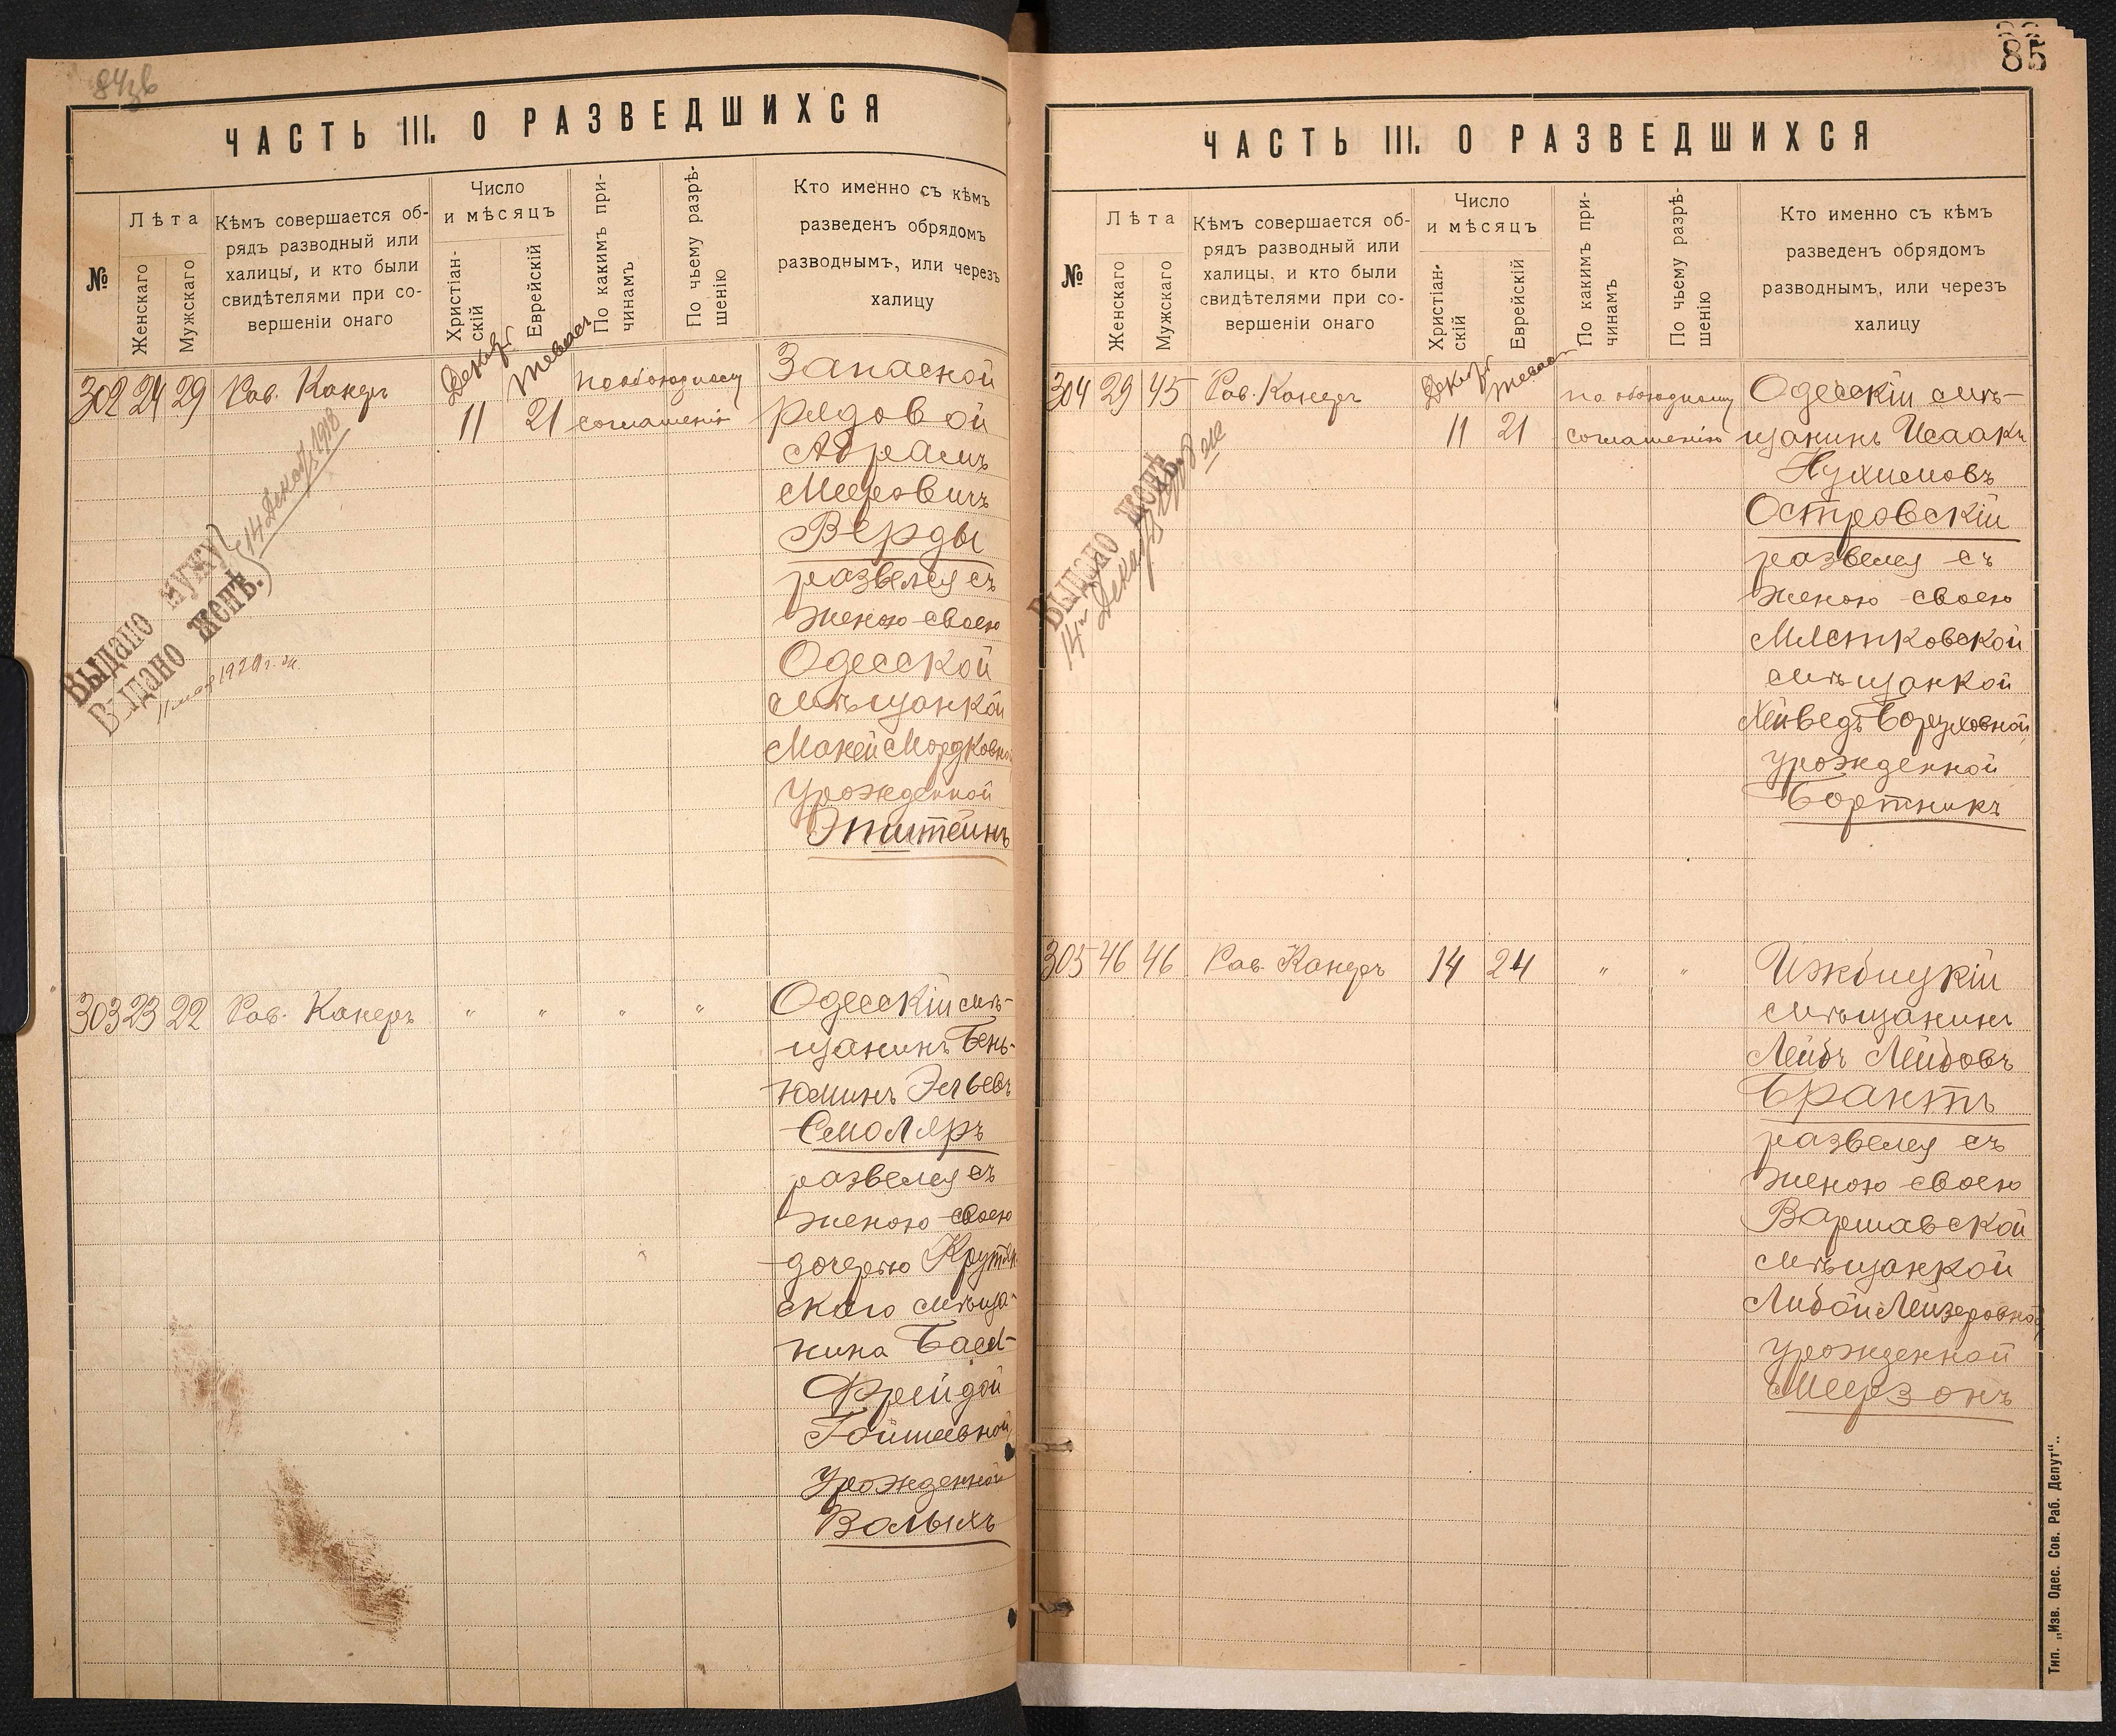 ЧАСТЬ III. О РАЗВЕДШИХСЯ
№
Лѣта
Женскаго
Мужскаго
Кѣмъ совершается об-
рядъ разводный или
халицы, и кто были
свидѣтелями при со-
вершеніи онаго
Число
и мѣсяцъ
Христіан-
скій
Еврейскій
По какимъ при-
чинамъ
По чьему разрѣ-
шенію
Кто именно съ кѣмъ
разведенъ обрядомъ
разводнымъ, или черезъ
халицу
302 24 29 Рав. Канеръ
11 21
по обоюдному
соглашенію
Запасной
рядовой
Абрамъ
Меровичъ
Верды
развелся съ
женою своею
Одесской
мѣщанкой
Маней Мордковной
урожденной
Эпштейнъ
Выдано мужу
Выдано женѣ.
14 Декаб. 1918
303 23 22 Рав. Канеръ
" " " "
Одесскій мѣ-
щанинъ Бень-
юминъ Эльевъ
Смоляръ
развелся съ
женою своею
дочерью
скаго мѣща-
нина Басей-
Фрейдой
урожденной
85
ЧАСТЬ III. О РАЗВЕДШИХСЯ
№
Лѣта
Женскаго
Мужскаго
Кѣмъ совершается об-
рядъ разводный или
халицы, и кто были
свидѣтелями при со-
вершеніи онаго
Число
и мѣсяцъ
Христіан-
скій
Еврейскій
По какимъ при-
чинамъ
По чьему разрѣ-
шенію
Кто именно съ кѣмъ
разведенъ обрядомъ
разводнымъ, или черезъ
халицу
304 29 45 Рав. Канеръ
11 21
по обоюдному
соглашенію
Одесскій мѣ-
щанинъ Исаакъ
Нухимовъ
Островскій
развелся съ
женою своею
Мястковской
мѣщанкой
Боруховной,
урожденной
Бортникъ
Выдано женѣ.
305 46 46 Рав. Канеръ 14 24 " "
Ижбицкій
мѣщанинъ
Лейбъ Лейбовъ
Брантъ
развелся съ
женою своею
Варшавской
мѣщанкой
Либой Лейзеровной,
урожденной
Меерзонъ
Тип. „Изв. Одес. Сов. Раб. Депут“..